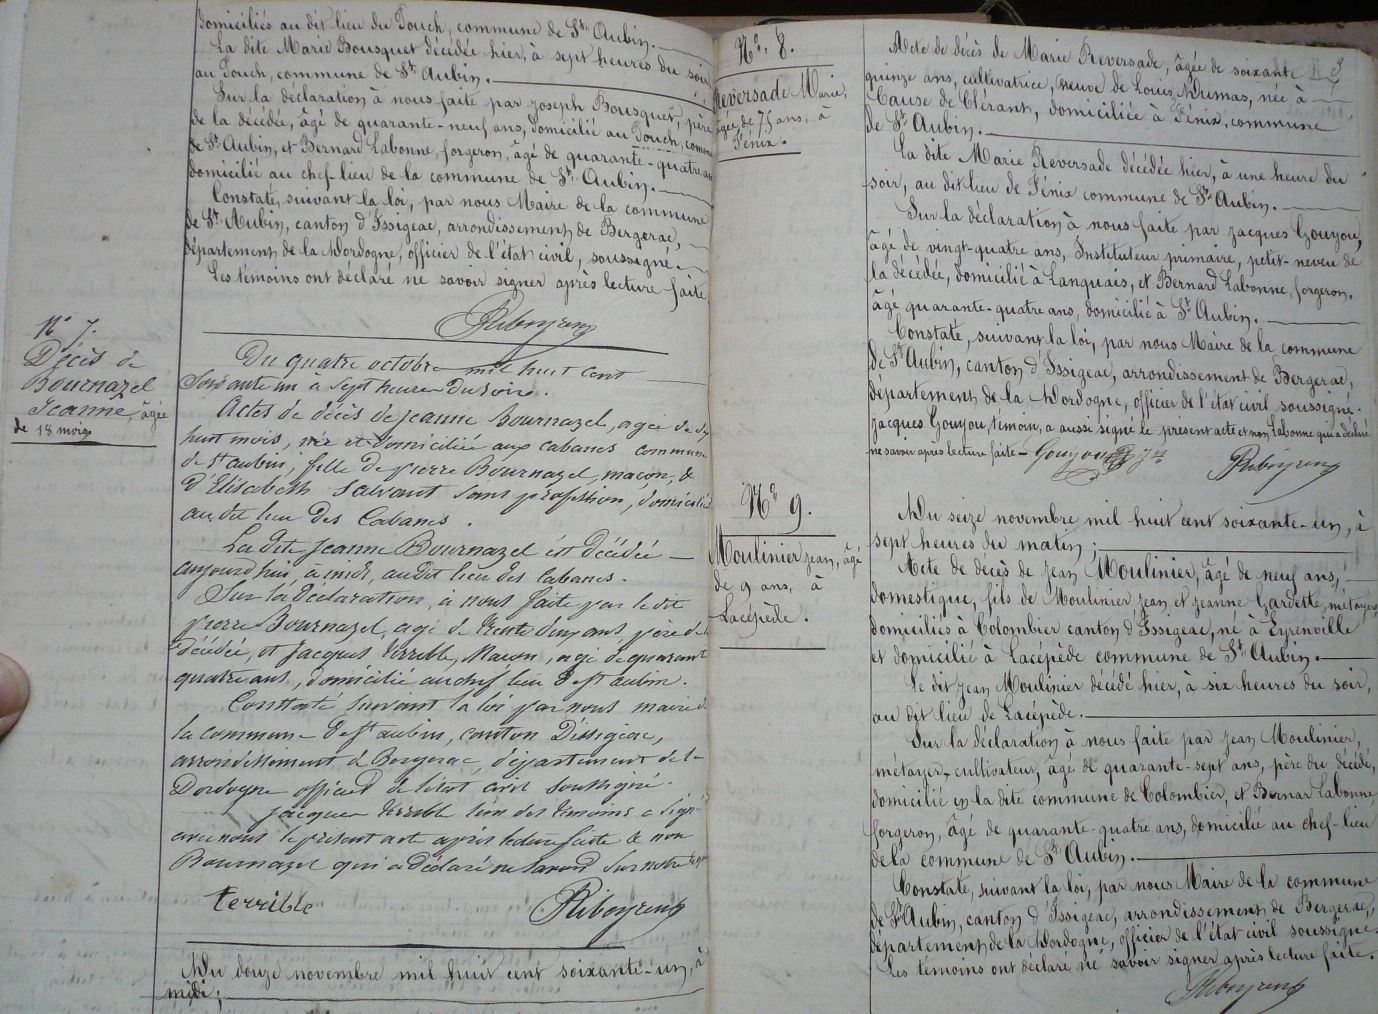 domiciliés au dit lieu du Touch, commune de St Aubin.
La dite Marie Bousquet décédée hier, à sept heures du soir,
au Touch, commune de St Aubin.
Sur la déclaration à nous faite par Joseph Bousquet, père
de la décédée, âgé de quarante-neuf ans, domicilié au Touch, comme
de St Aubin, et Bernard Labonne, forgeron, âgé de quarante-quatre ans
domicilié au chef-lieu de la commune de St Aubin.
Constaté, suivant la loi, par nous Maire de la commune
de St Aubin, canton d'Issigeac, arrondissement de Bergerac,
département de la Dordogne, officier de l'état civil, soussigné.
Les témoins ont déclaré ne savoir signer après lecture faite
N° 7.
Décès de
Bournazel
Jeanne, âgée
de 18 mois
Du quatre octobre mil huit cent
soixante un à sept heures du soir.
Actes de décès de jeanne Bournazel, agée de dix
huit mois, née et domiciliée aux cabanes commune
de st aubin, fille de pierre Bournazel, maçon, &
d'Elisabeth Salvant sans profession, domiciliés
au dit lieu des Cabanes.
La dite jeanne Bournazel est décédée
aujourd'hui, à midi, au dit lieu des Cabanes.
Sur la déclaration, à nous faite par le dit
pierre Bournazel, agé de trente deux ans, père de la
décédée, et jacques terrible, Macon, agé de quarante
quatre ans, domicilié au chef lieu de st aubin.
Constaté suivant la loi par nous maire de
la commune de st aubin, canton D'issigeac,
arrondissement de Bergerac département de la
Dordogne officier de l'état civil soussigné.
jacques terrible l'un des témoins a signé
avec nous le présent acte après lecture faite & non
Bournazel qui a déclaré ne savoir sur notre
terrible
Riboyreux
Du douze novembre mil huit cent soixante-un, à
midi;
N°. 8.
Reversade Marie,
âgée de 75 ans, à
Fénix.
Acte de décès de Marie Reversade, âgée de soixante
quinze ans, cultivatrice, veuve de Louis Dumas, née à
Cause de Clérant, domiciliée à Fénix, commune
de St Aubin.
La dite Marie Reversade décédée hier, à une heure du
soir, au dit lieu de Fénix commune de St Aubin.
Sur la déclaration à nous faite par Jacques Gouyou,
âgé de vingt-quatre ans, Instituteur primaire, petit-neveu de
la décédée, domicilié à Lanquais, et Bernard Labonne, forgeron,
âgé quarante-quatre ans, domicilié à St Aubin.
Constaté, suivant la loi, par nous Maire de la commune
de St Aubin, canton d'Issigeac, arrondissement de Bergerac,
département de la Dordogne, officier de l'état civil soussigné.
Jacques Gouyou, témoin, a aussi signé le présent acte et non Labonne qui a déclaré
ne savoir après lecture faite — Gouyou
Riboyreux
N° 9.
Moulinier Jean, âgé
de 9 ans, à
Lacépède.
Du seize novembre mil huit cent soixante-un, à
sept heures du matin;
Acte de décès de Jean Moulinier, âgé de neuf ans,
domestique, fils de Moulinier Jean et Jeanne Gardette, métayers,
domiciliés à Colombier canton d'Issigeac, né à Eyrenville
et domicilié à Lacépède commune de St Aubin.
Le dit Jean Moulinier décédé hier, à six heures du soir,
au dit lieu de Lacépède.
Sur la déclaration à nous faite par Jean Moulinier,
métayer-cultivateur, âgé de quarante-sept ans, père du décédé,
domicilié en la dite commune de Colombier, et Bernar Labonne,
forgeron, âgé de quarante-quatre ans, domicilié au chef-lieu
de la commune de St Aubin.
Constaté, suivant la loi, par nous Maire de la commune
de St Aubin, canton d'Issigeac, arrondissement de Bergerac,
département de la Dordogne, officier de l'état civil soussigné.
Les témoins ont déclaré ne savoir signer après lecture faite.
Riboyreux